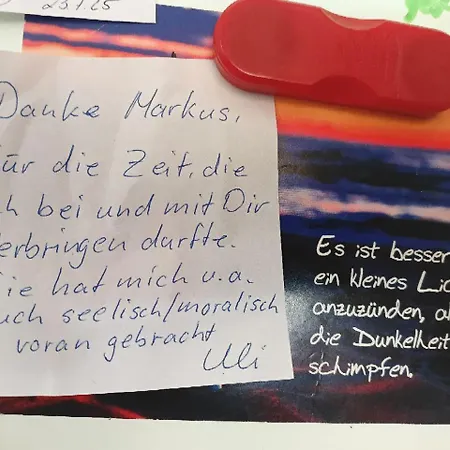 23.1.25
Danke Markus,
für die Zeit, die
ch bei und mit Dir
erbringen durfte.
ie hat mich u.a.
uch seelisch/moralisch
voran gebracht
Uli
Es ist besser
ein kleines Lic
anzuzünden, al
die Dunkelheit
schimpfen.